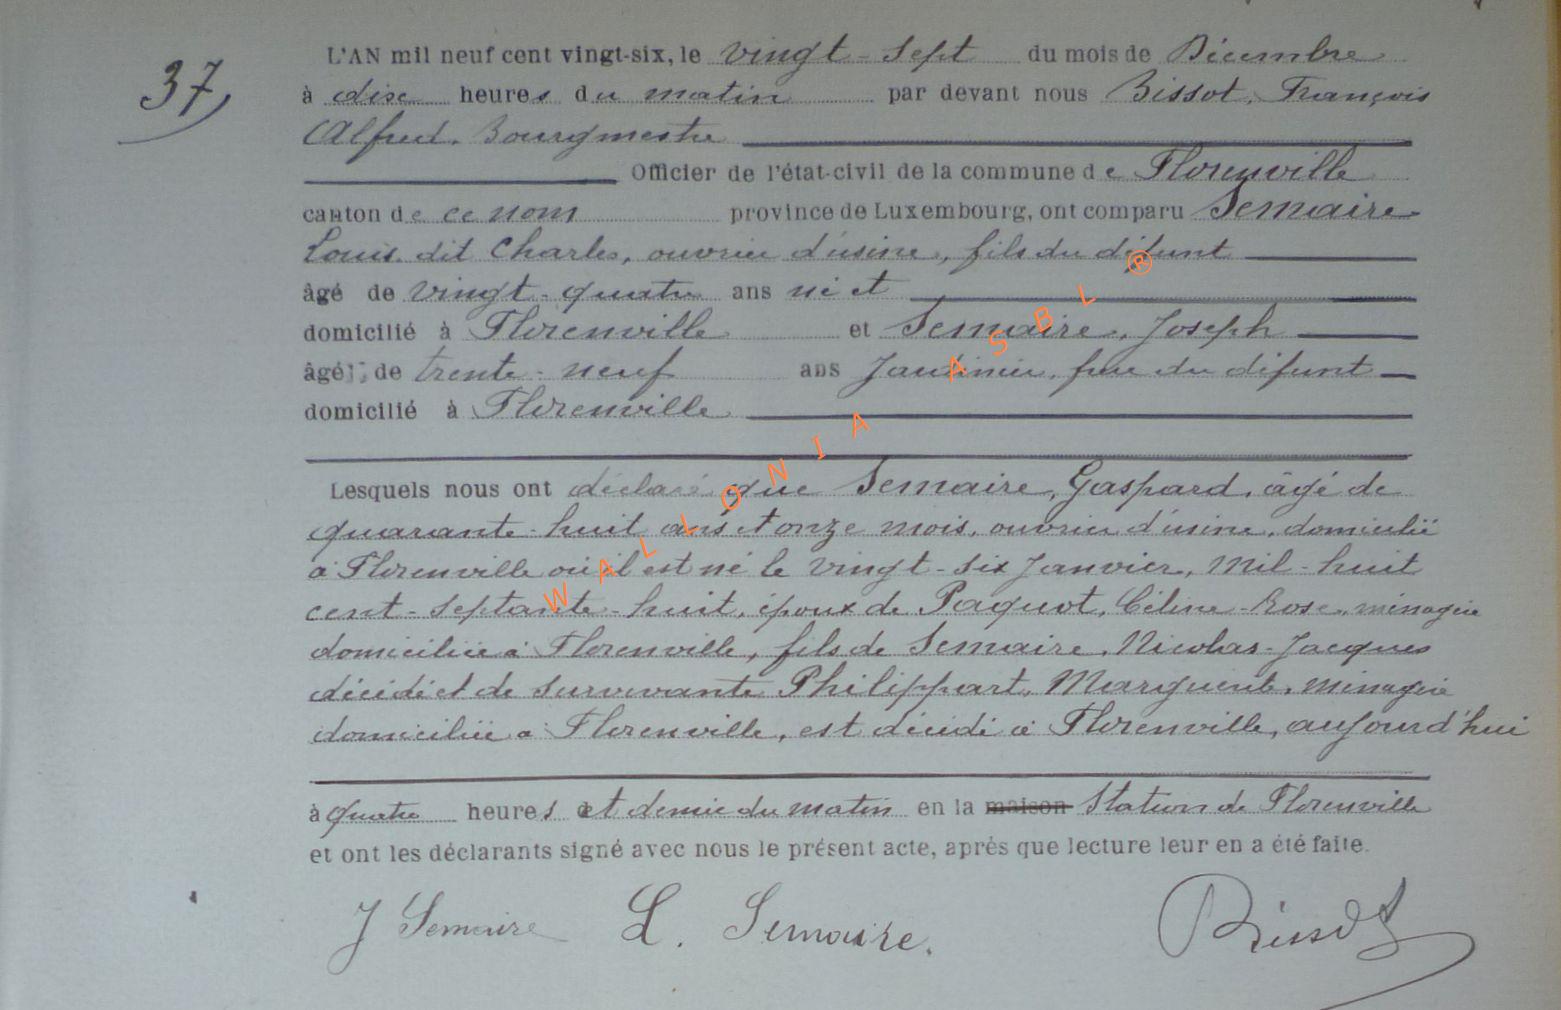 37,
L'AN mil neuf cent vingt-six, le vingt-sept du mois de Décembre
à dix heures du matin par devant nous Bissot, François
Alfred, Bourgmestre
Officier de l'état-civil de la commune de Florenville
canton de ce nom province de Luxembourg, ont comparu Semaire
Louis dit Charles, ouvrier d'usine, fils du défunt
âgé de vingt-quatre ans né et
domicilié à Florenville et Semaire, Joseph
âgé de trente-neuf ans Jardinier, frère du défunt
domicilié à Florenville
Lesquels nous ont déclaré que Semaire, Gaspard, âgé de
quarante-huit ans et onze mois, ouvrier d'usine, domicilié
à Florenville où il est né le vingt-six Janvier, mil-huit
cent-septante-huit, époux de Paquot, Céline-Rose, ménagère
domiciliée à Florenville, fils de Semaire, Nicolas-Jacques
décédé et de survivante Philippart, Marguerite, ménagère
domiciliée à Florenville, est décédé à Florenville, aujourd'hui
à quatre heures et demie du matin en la maison Station de Florenville
et ont les déclarants signé avec nous le présent acte, après que lecture leur en a été faite.
J Semaire L. Semaire. Bissot
WALLONIA ASBL ®